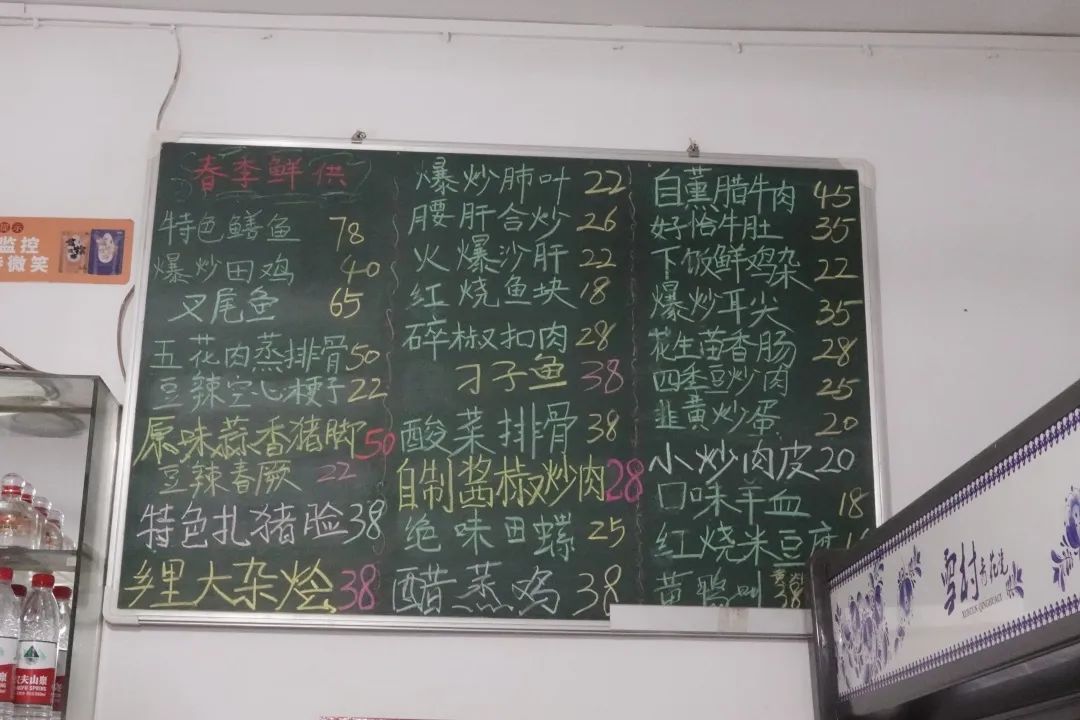 春季鲜供
特色鳝鱼 78
爆炒田鸡 40
叉尾鱼 65
五花肉蒸排骨50
豆辣空心梗子22
原味蒜香猪脚50
豆辣春厥 22
特色扎猪脸38
乡里大杂烩38
爆炒肺叶 22
腰肝合炒 26
火爆沙肝 22
红烧鱼块 18
碎椒扣肉 28
刁子鱼 38
酸菜排骨 38
自制酱椒炒肉28
绝味田螺 25
醋蒸鸡 38
自薰腊牛肉 45
好恰牛肚 35
下饭鲜鸡杂 22
爆炒耳尖 35
花生苗香肠 28
四季豆炒肉 25
韭黄炒蛋 20
小炒肉皮20
口味羊血 18
红烧米豆腐
黄鸭叫 38
监控
微笑
雪村
XUECUN
农夫山泉